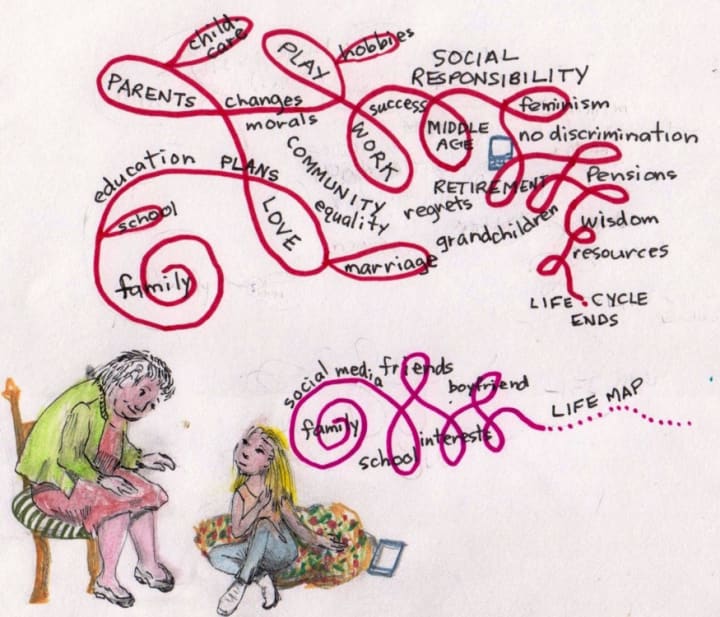 child
care
PARENTS
changes
morals
PLAY
hobbies
success
WORK
SOCIAL
RESPONSIBILITY
MIDDLE
AGE
feminism
no discrimination
RETIREMENT
regrets
grandchildren
pensions
wisdom
resources
LIFE CYCLE
ENDS
COMMUNITY
equality
education PLANS
school
family
LOVE
marriage
social media
friends
boyfriend
family
school
interests
LIFE MAP